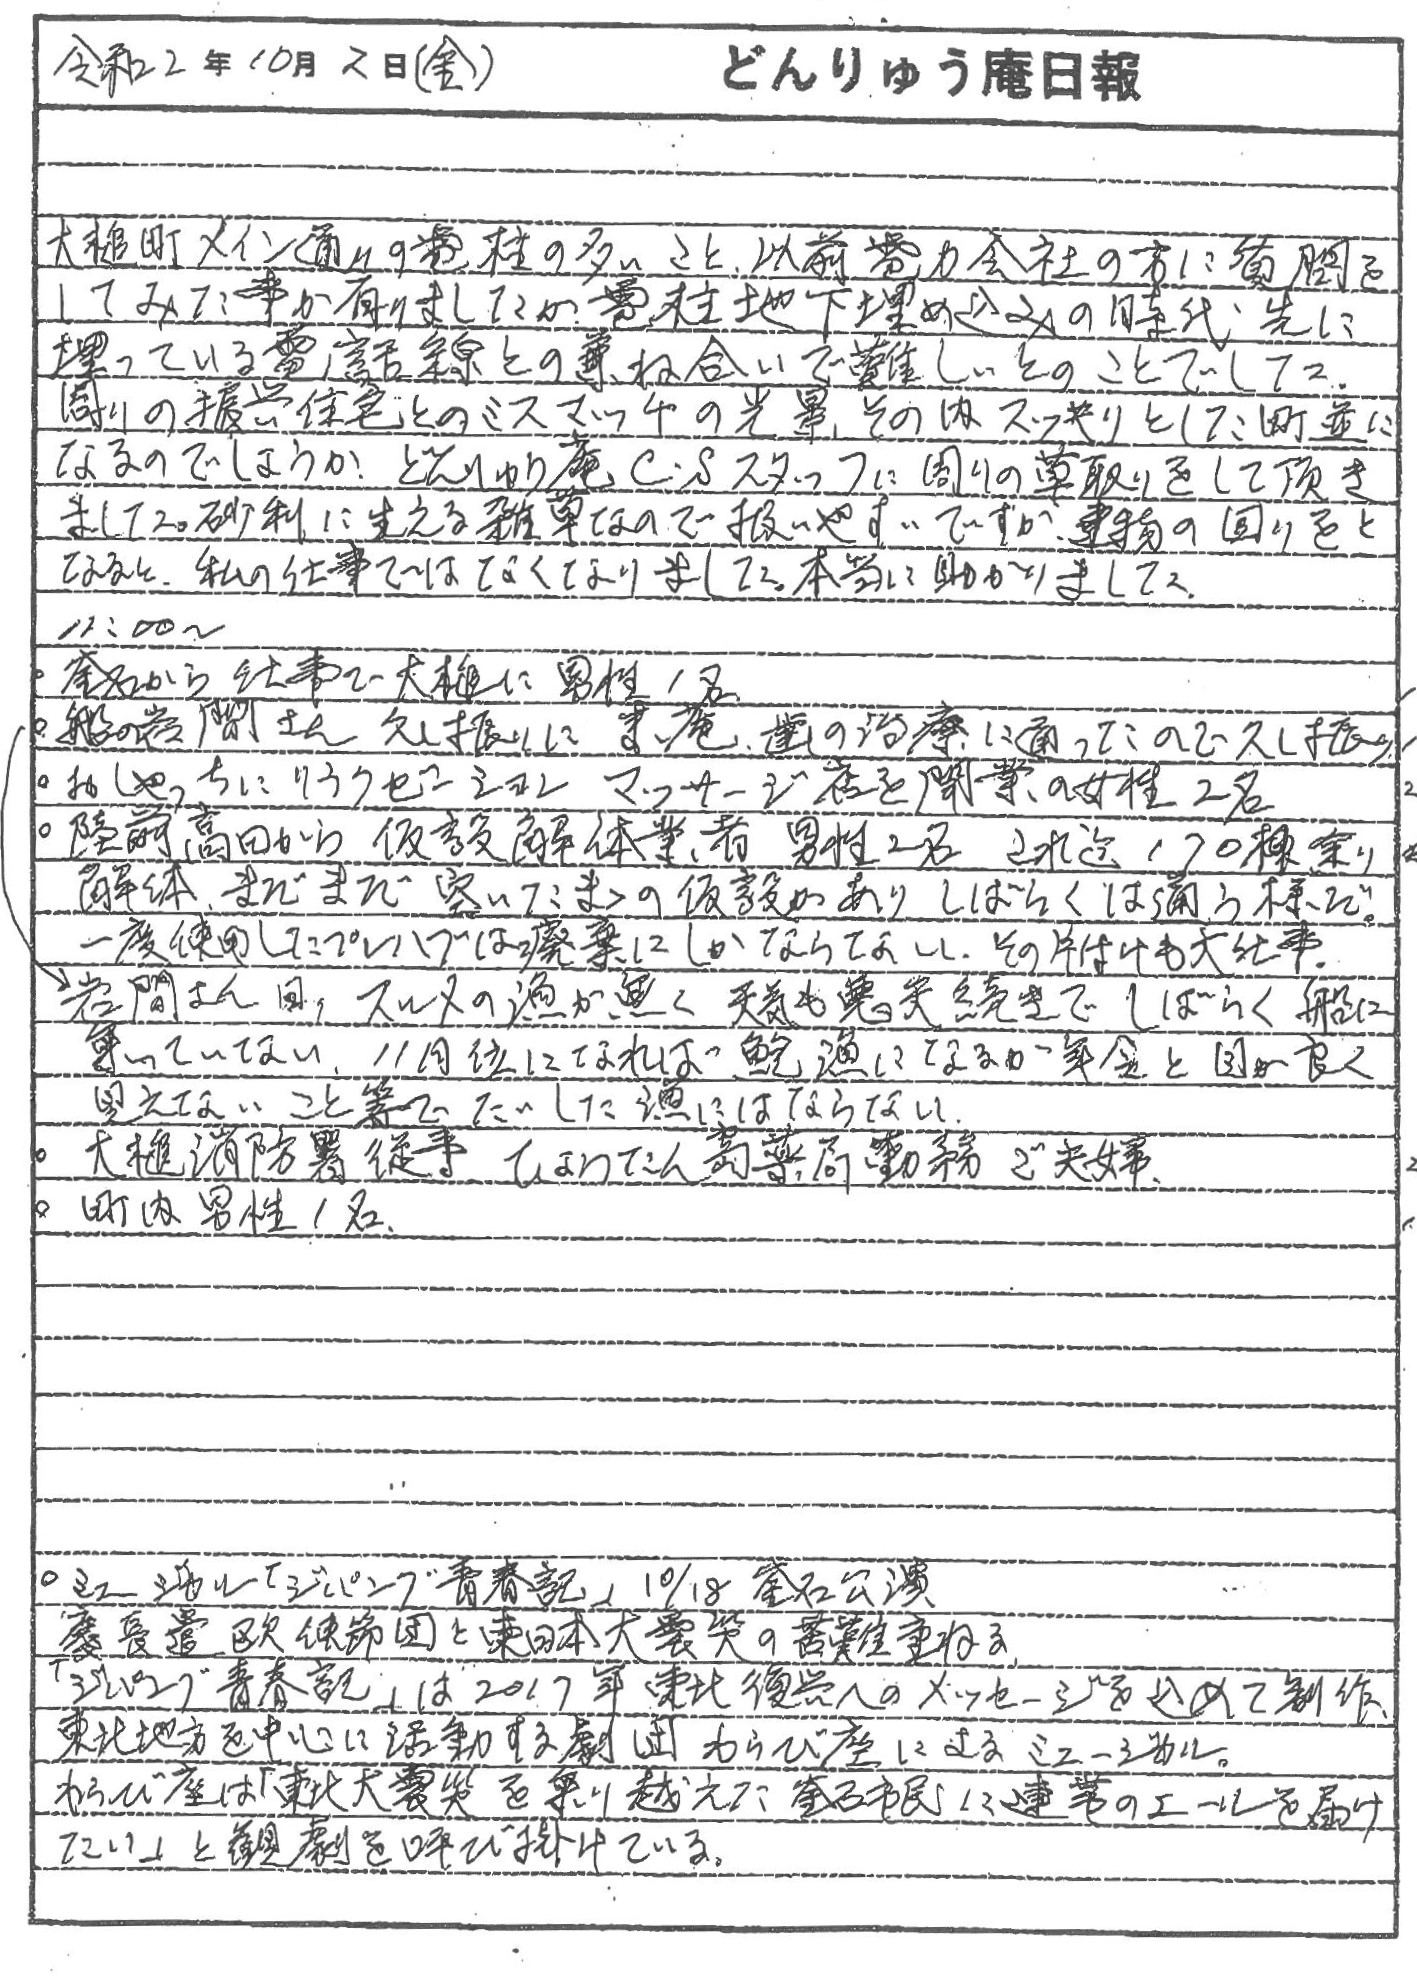 令和2年10月2日(金) どんりゅう庵日報
大槌町メイン通りの電柱の多いこと、以前電力会社の方に質問を
してみた事が有りましたが、電柱地下埋め込みの時代、先に
埋っている電話線との兼ね合いで難しいとのことでした。
周りの復興住宅とのミスマッチの光景、その内スッキリとした町並に
なるのでしょうか? どんりゅう庵、C・Sスタッフに周りの草取りをして頂き
ました。砂利に生える雑草なので扱いやすいですが、建物の回りをと
なると、私の仕事ではなくなりました。本当に助かりました。
11:00〜
○ 釜石から仕事で大槌に 男性1名
○ 船の岩間さん 久し振りに 来庵、歯の治療に通ったので久し振り 1
○ おしゃっちにリラクゼーション マッサージ店を開業の女性2名 2
○ 陸前高田から 仮設解体業者 男性2名 これ迄170棟余り 2
解体、まだまだ 空いたまゝの仮設があり しばらくは通う様だ。
一度使用したプレハブは廃棄にしかならない、その片付けも大仕事。
岩間さん曰く スルメの漁が無く 天気も悪天続きで しばらく船に
乗っていない、11月位になれば 鮑漁になるが 年金と目が良く
見えないこと等で たいした漁にはならない。
○ 大槌消防署従事 ひょうたん島薬局勤務 ご夫婦、 2
○ 町内男性1名、 1
○ ミュージカル「ジパング青春記」 10/18 釜石公演
慶長遣欧使節団と東日本大震災の苦難重ねる
「ジパング青春記」は2017年 東北復興へのメッセージを込めて制作、
東北地方を中心に活動する劇団 わらび座によるミュージカル。
わらび座は「東北大震災を乗り越えた 釜石市民に連帯のエールを届け
たい」と観劇を呼び掛けている。